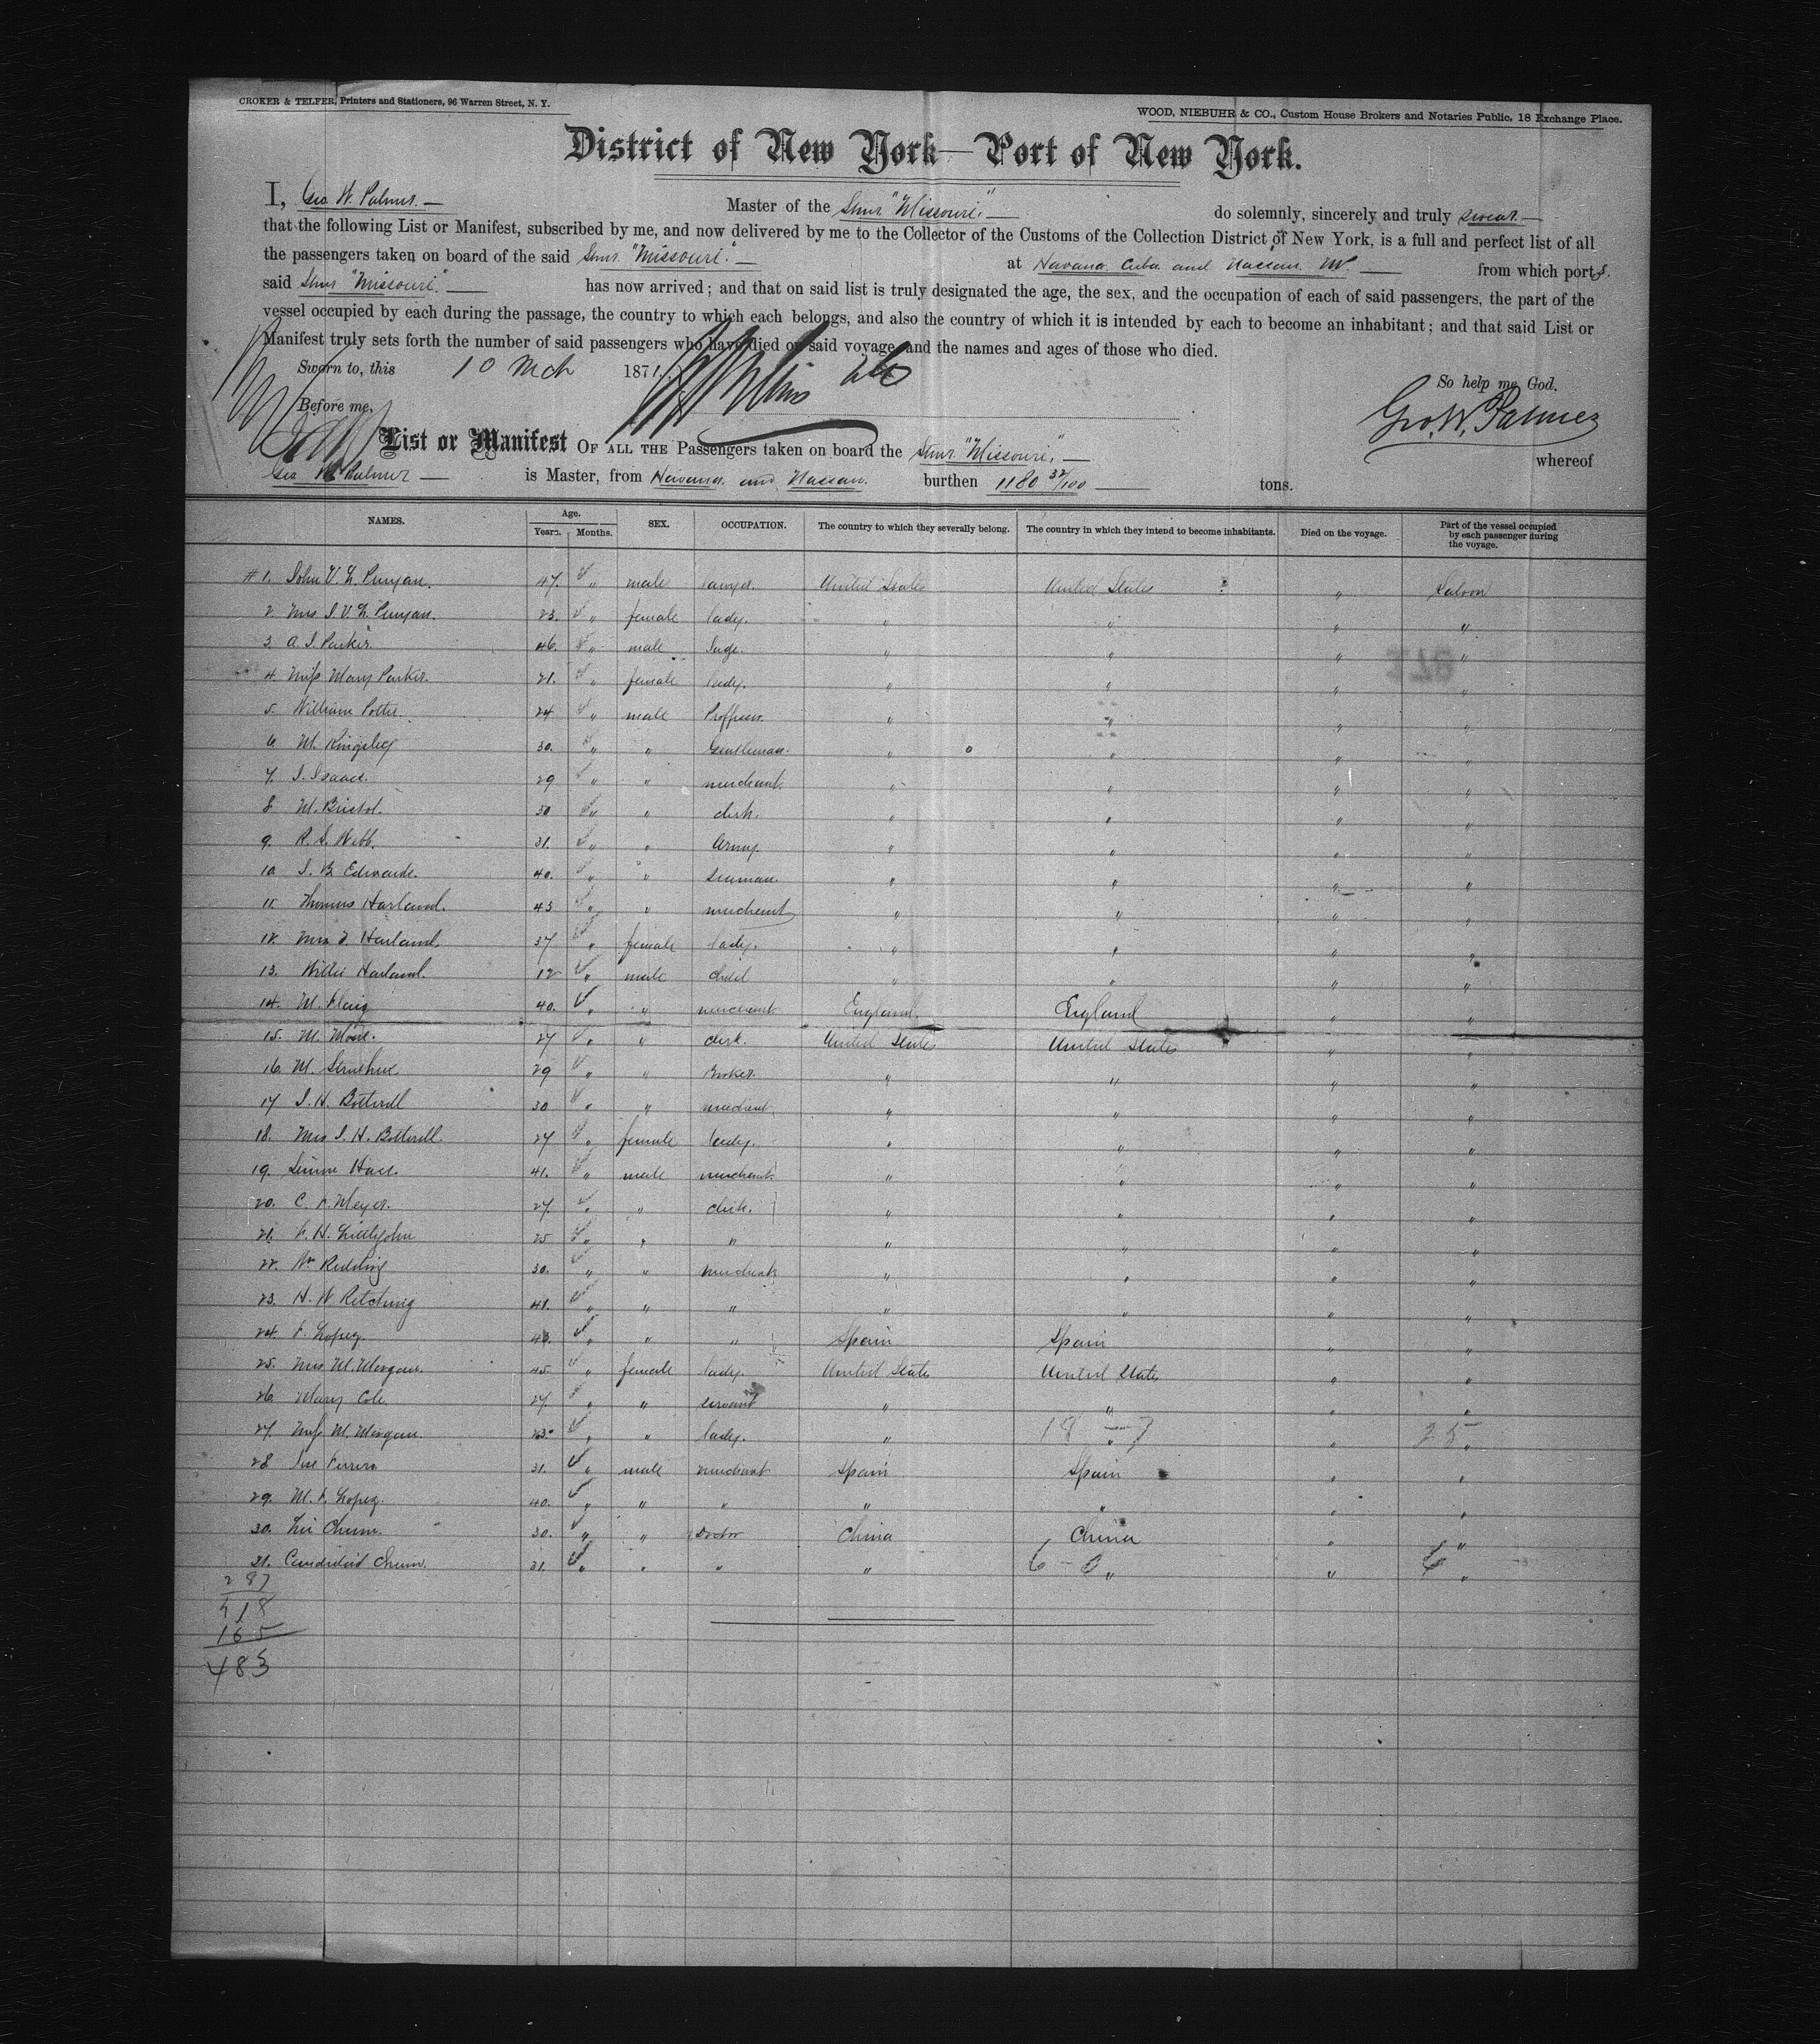 CROKER & TELFER, Printers and Stationers, 96 Warren Street, N. Y.
WOOD, NIEBUHR & CO., Custom House Brokers and Notaries Public, 18 Exchange Place.
District of New York—Port of New York.
I, Geo W. Palmer. — Master of the Stmr "Missouri," — do solemnly, sincerely and truly swear —
that the following List or Manifest, subscribed by me, and now delivered by me to the Collector of the Customs of the Collection District of New York, is a full and perfect list of all
the passengers taken on board of the said Stmr. "Missouri". — at Havana, Cuba and Nassau — from which ports.
said Stmr "Missouri". — has now arrived; and that on said list is truly designated the age, the sex, and the occupation of each of said passengers, the part of the
vessel occupied by each during the passage, the country to which each belongs, and also the country of which it is intended by each to become an inhabitant; and that said List or
Manifest truly sets forth the number of said passengers who have died on said voyage, and the names and ages of those who died.
Sworn to, this 10 Mch 1871.
So help me God.
Before me,
Geo. W. Palmer
List or Manifest OF ALL THE Passengers taken on board the Stmr. "Missouri," — whereof
Geo W. Palmer — is Master, from Havana and Nassau. burthen 1180 32/100 — tons.
NAMES. Age. Years. Months. SEX. OCCUPATION. The country to which they severally belong. The country in which they intend to become inhabitants. Died on the voyage. Part of the vessel occupied by each passenger during the voyage.
#1. John V. L. Pruyan. 47. " male lawyer. United States United States " Saloon
2. Mrs J. V. L. Pruyan. 23. " female lady. " " " "
3. A. J. Parker. 46. " male Juge. " " " "
4. Miss Mary Parker. 21. " female lady. " " " "
5. William Potter. 24 " male " " " "
6. M. Kingsley 30. " " Gentleman. " " " "
7. J. Isaacs. 29 " " merchant. " " " "
8 M. Bristol. 30 " " clerk. " " " "
9. R. S. Webb. 31. " " Army " " " "
10 J. B. Edwards. 40. " " seaman. " " " "
11. Thomas Harland. 43 " " merchant " " " "
12. Mrs T. Harland. 37 " female lady. " " " "
13. Willie Harland. 12 " male child " " " "
14. M. 40. " " merchant. England. England " "
15. M. 27 " " clerk. United States United States " "
16. M. 29 " " Broker. " " " "
17 J. H. Botterell 30 " " merchant. " " " "
18. Mrs J. H. Botterell. 27 " female lady. " " " "
19. 41. " male merchant. " " " "
20. C. F. Meyer. 27. " " clerk. " " " "
21. F. H. Littlejohn 25 " " " " " " "
22. Wm Redding 30. " " merchant " " " "
23. H. W. 41. " " " " " " "
24. F. Lopez. 43. " " " Spain Spain " "
25. Mrs M. Morgan. 45. " female lady. United States United States " "
26. Mary Cole. 27. " " servant " " " "
27. Miss M. Morgan. 23. " " lady. " " " "
18 — 7 25
28 Jose Ferrera 31. " male merchant Spain Spain " "
29. M. F. Lopez. 40. " " " " " " "
30. Chum. 30. " " Doctor China China " "
31. Chum. 31. " " " " " " "
6 — 0 6
287
518
165
483